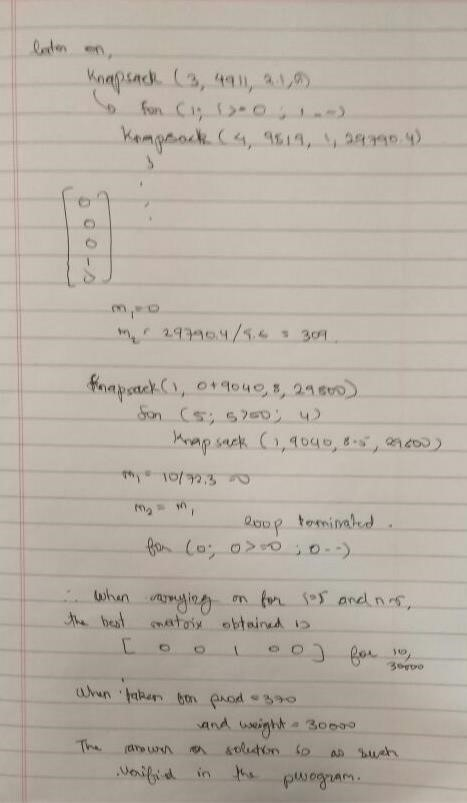 later on,
Knapsack (3, 4911, 2.1, 0)
↳ for (1; 1>=0; 1--)
Knapsack (4, 9819, 1, 29790.4)
}
.
.
.
[0
0
0
1
0]
m₁=0
m₂ = 29790.4/9.6 = 309.
Knapsack(1, 0+9040, 8, 29800)
for (5; 5>=0; 4)
Knapsack (1, 9040, 8.5, 29800)
m₁ = 10/72.3 = 0
m₂ = m₁
loop terminated.
for (0; 0>=0; 0--)
∴ When carrying on for and n=5,
the best matrix obtained is
[ 0 0 1 0 0 ] for 10,
30000
When taken for prod = 370
and weight = 30000
The answer or solution is as such
verified in the pwogram.